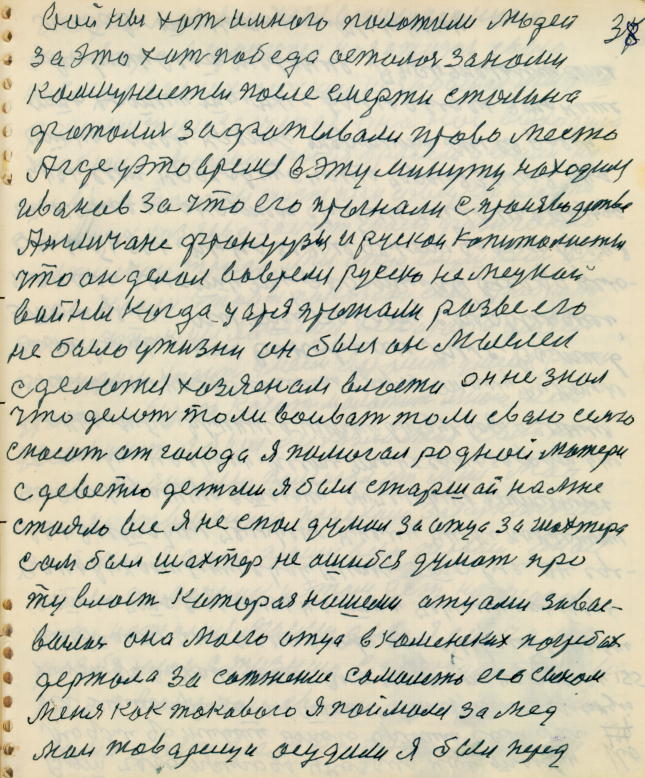 войны хот имного положили людей 38
за Это хот победа осталоя занами
Коммунисты после смерти сталина
фотоли захвотывали право место
Агде уЭто время вЭту минуту находил
иванов за что его прогнали с производства
Англичане французы и руской Капиталисты
что он делал вовремя руско немецкой
войны когда царя прогнали разве его
не было ужизни он был он мыслел
сделотся хозяеном власти он не знал
что делот толи воеват толи сваю семю
спосат от голода я помогал родной матери
с деветю детями я был старшай на мне
стояло все я не спал думал за отца за шахтера
сам был шахтер не ошибся думат про
ту власт которая нашеми отцами завае-
валоя она моего отца в каменских погребах
держала за сожжение самалета его сыном
меня как такового я поймала за мед
мои товарещи осудили я был перед